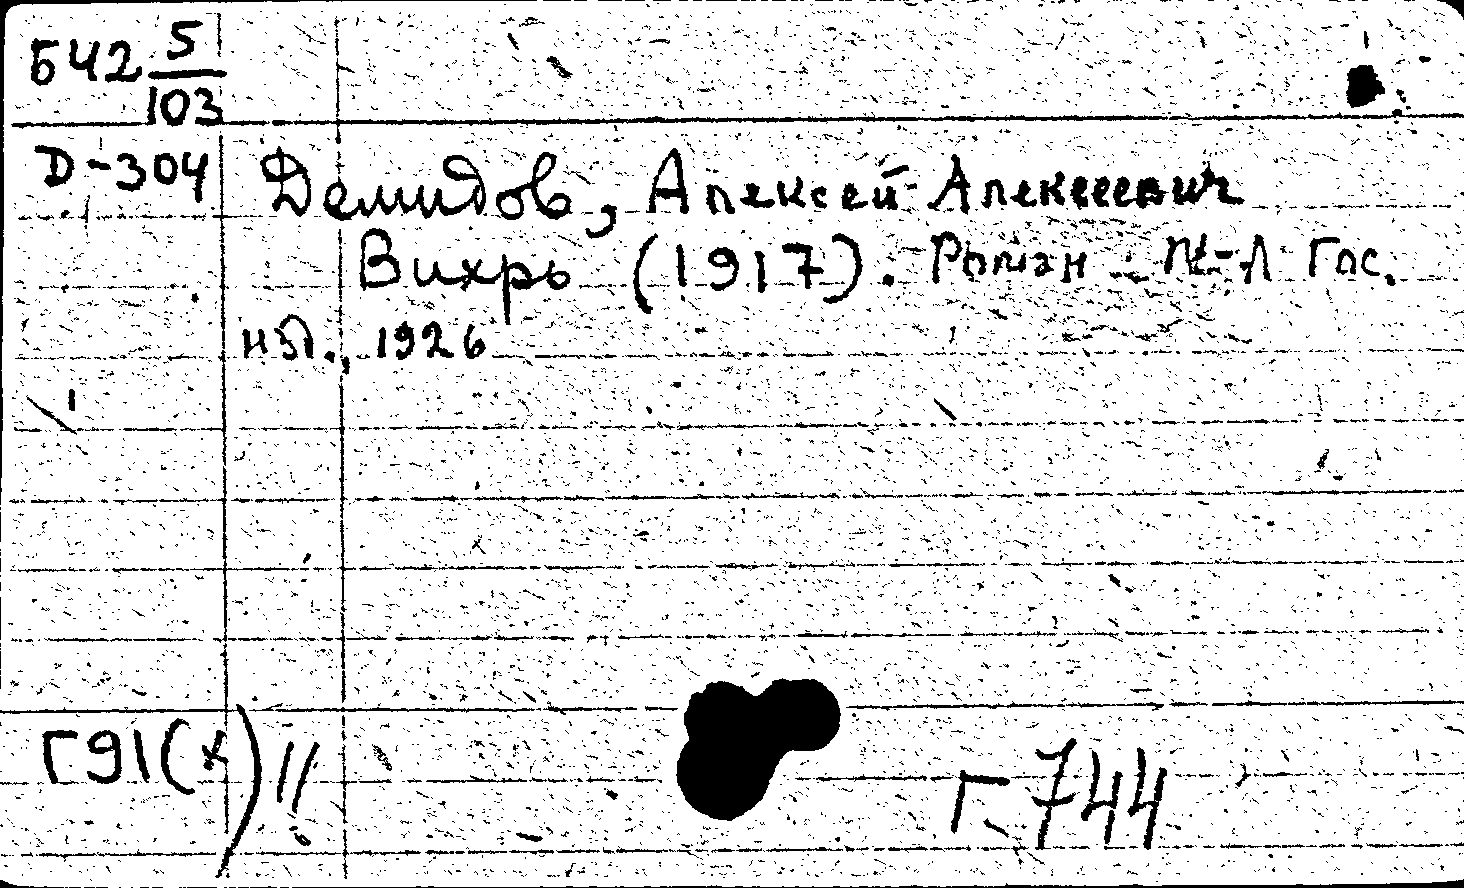 Б42 5/103
Д-304 Демидов, Алексей Алексеевич
Вихрь (1917). Роман М-Л Гос.
изд., 1926
Г91(х)
Г-744